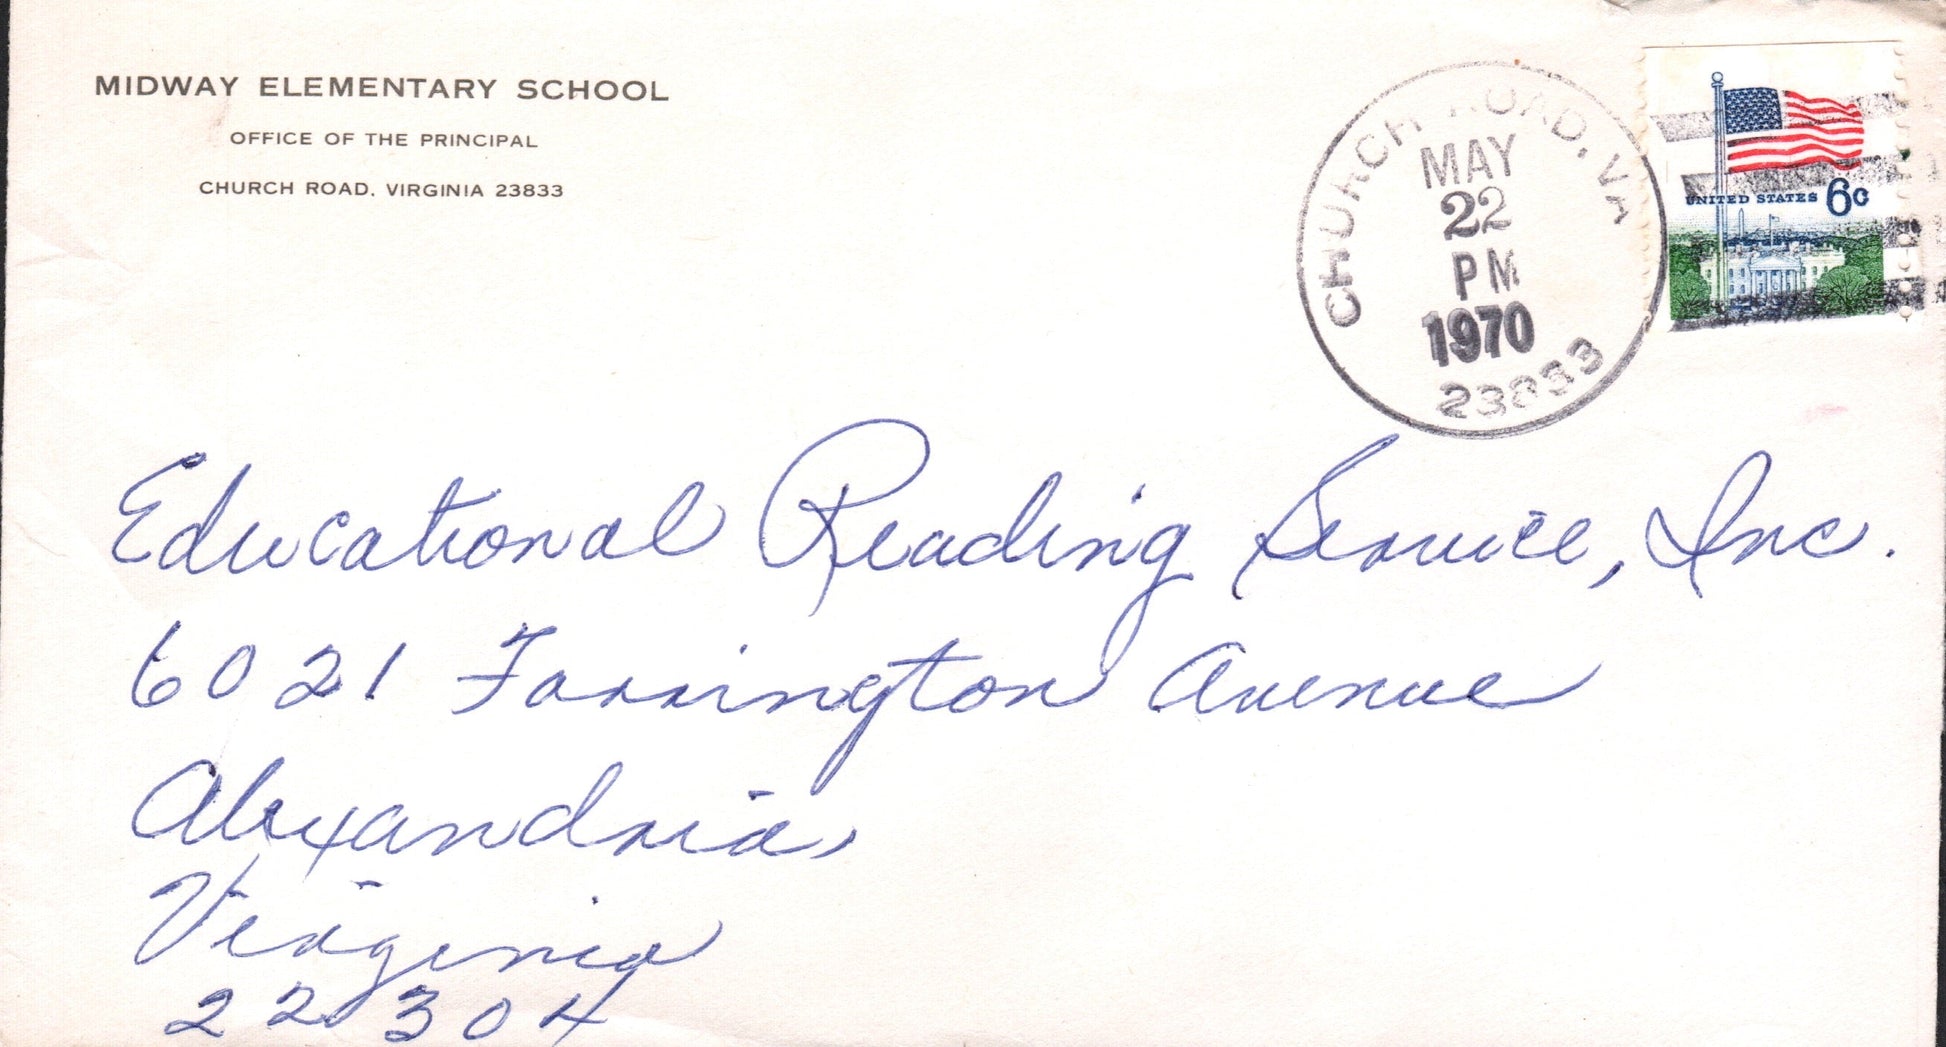 MIDWAY ELEMENTARY SCHOOL
OFFICE OF THE PRINCIPAL
CHURCH ROAD, VIRGINIA 23833
CHURCH ROAD, VA
MAY
22
PM
1970
23833
UNITED STATES 6c
Educational Reading Service, Inc.
6021 Farrington Avenue
Alexandria,
Virginia
22304